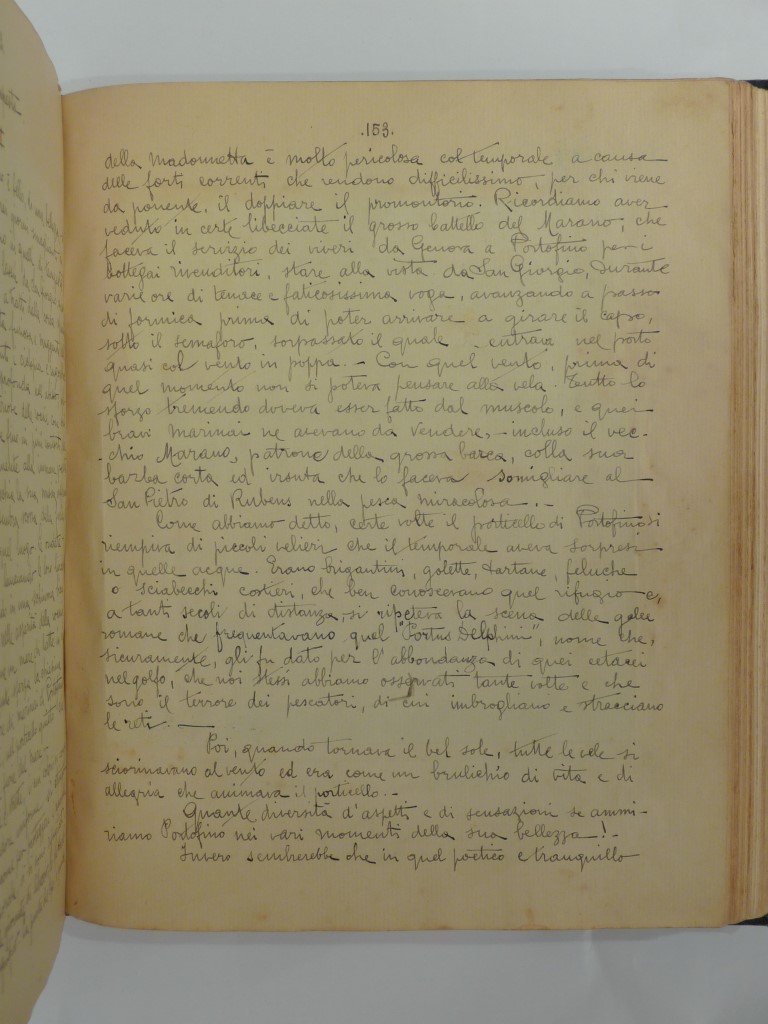 .153.
della Madonnetta è molto pericolosa col temporale a causa
delle forti correnti che rendono difficilissimo, per chi viene
da ponente, il doppiare il promontorio. Ricordiamo aver
veduto in certe libecciate il grosso battello del Marano, che
faceva il servizio dei viveri da Genova a Portofino per i
bottegai rivenditori, stare alla vista da San Giorgio, durante
varie ore di tenace e faticosissima voga, avanzando a passo
di formica prima di poter arrivare a girare il capo,
sotto il semaforo, sorpassato il quale entrava nel porto
quasi col vento in poppa. - Con quel vento, prima di
quel momento non si poteva pensare alla vela. Tutto lo
sforzo tremendo doveva esser fatto dal muscolo, e quei
bravi marinai ne avevano da vendere, - incluso il vec-
-chio Marano, patrone della grossa barca, colla sua
barba corta ed irsuta che lo faceva somigliare al
San Pietro di Rubens nella pesca miracolosa. -
Come abbiamo detto, certe volte il porticello di Portofino si
riempiva di piccoli velieri che il temporale aveva sorpresi
in quelle acque. Erano brigantini, golette, tartane, feluche
o sciabecchi costieri, che ben conoscevano quel rifugio e,
a tanti secoli di distanza, si ripeteva la scena delle galee
romane che frequentavano quel "Portus Delphini", nome che,
sicuramente, gli fu dato per l'abbondanza di quei cetacei
nel golfo, che noi stessi abbiamo osservati tante volte e che
sono il terrore dei pescatori, di cui imbrogliano e stracciano
le reti. -
Poi, quando tornava il bel sole, tutte le vele si
sciorinavano al vento ed era come un brulichio di vita e di
allegria che animava il porticello. -
Quante diversità d'aspetti e di sensazioni se ammi-
riamo Portofino nei vari momenti della sua bellezza! -
Invero sembrerebbe che in quel poetico e tranquillo